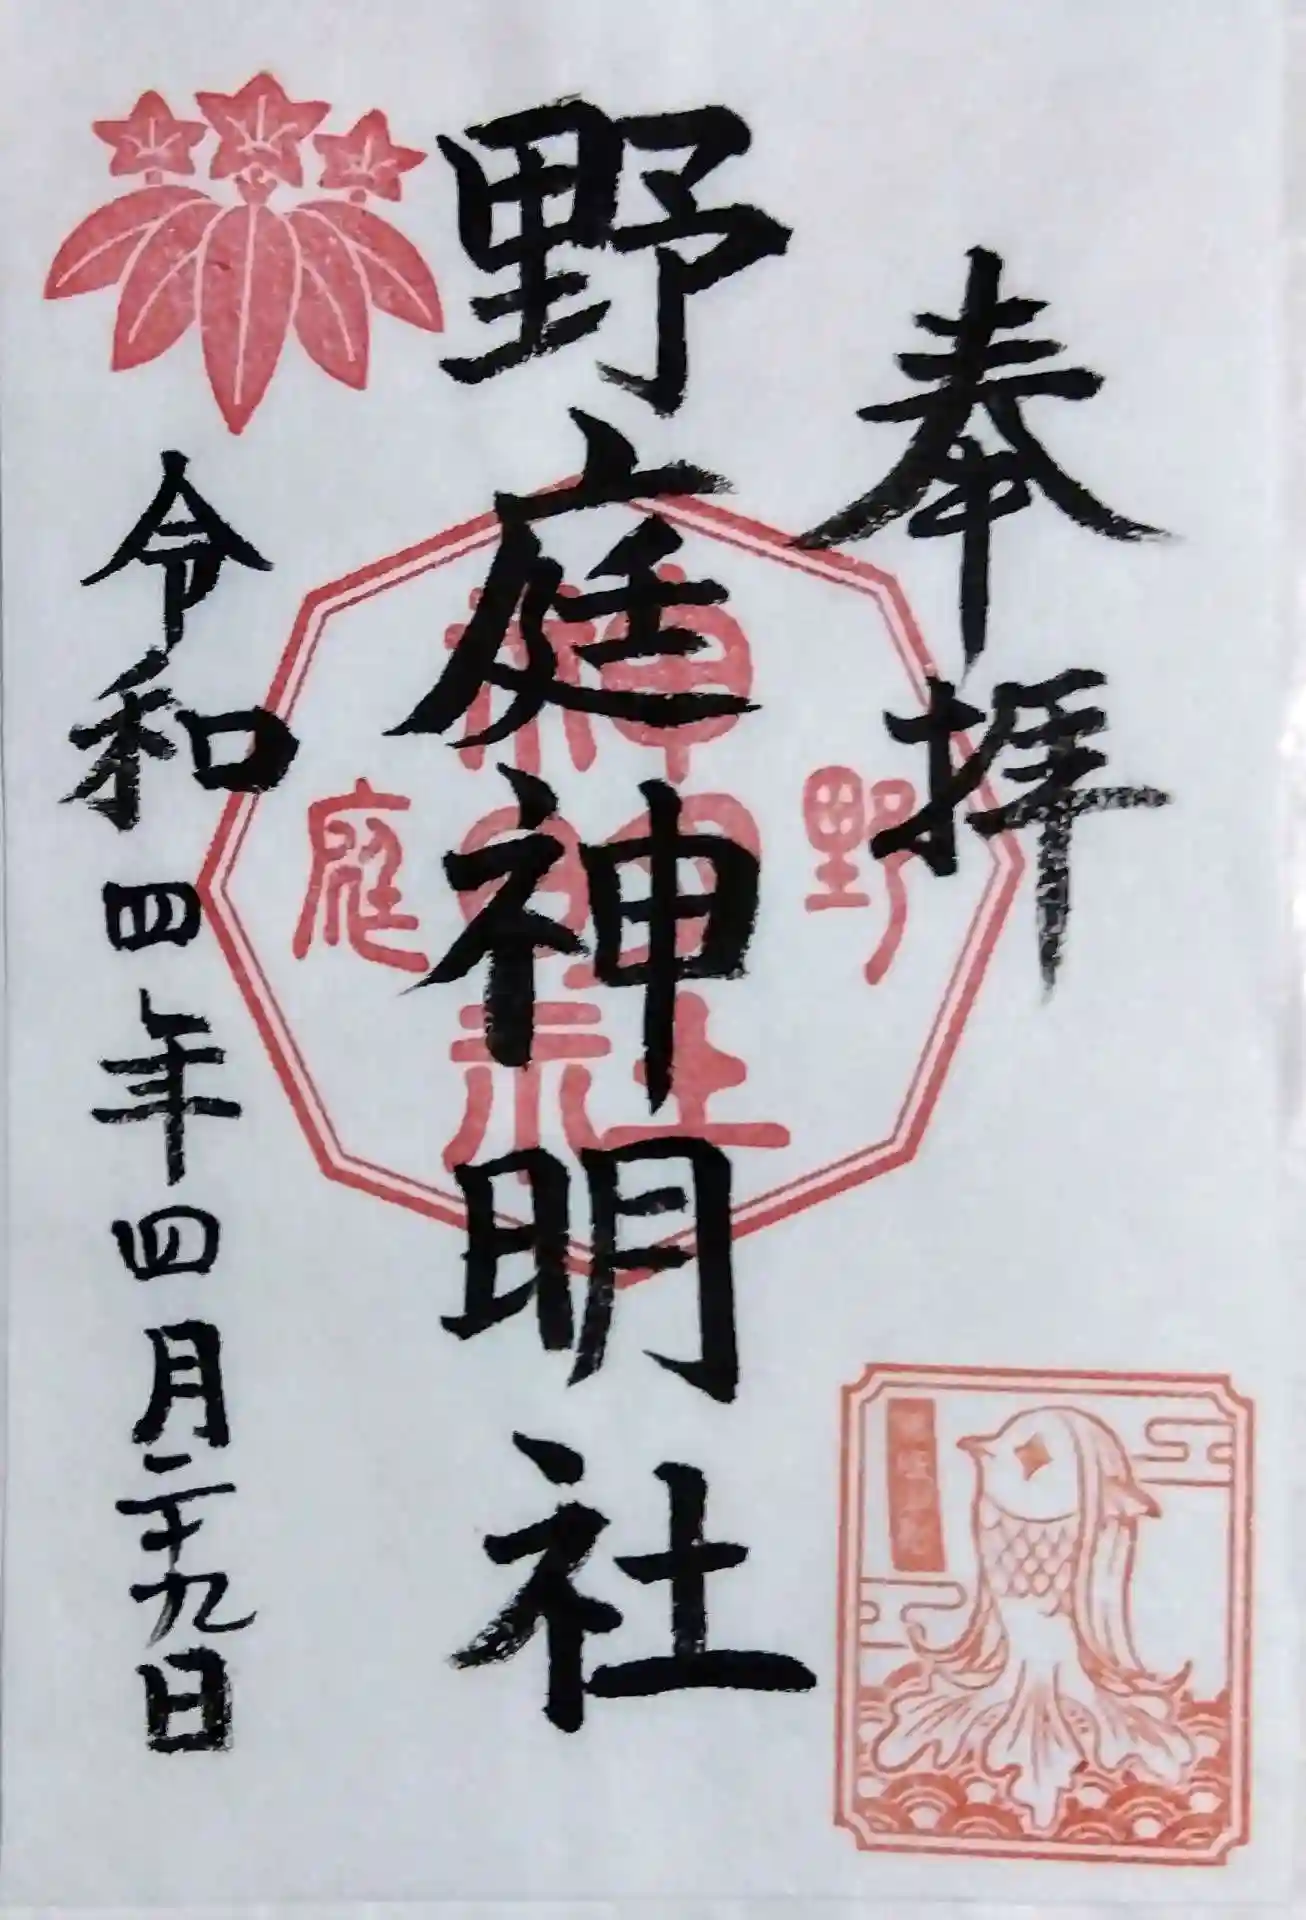 奉拝
野庭神明社
野
神明社
庭
令和四年四月二十九日